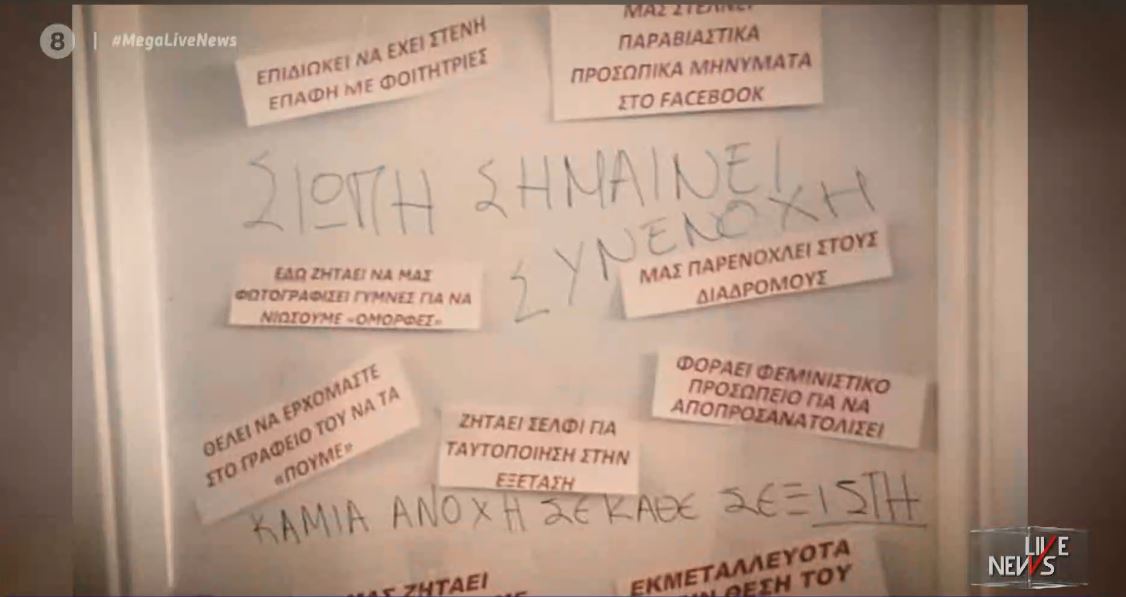 8 | #MegaLiveNews
ΕΠΙΔΙΩΚΕΙ ΝΑ ΕΧΕΙ ΣΤΕΝΗ
ΕΠΑΦΗ ΜΕ ΦΟΙΤΗΤΡΙΕΣ
ΜΑΣ ΣΤΕΛΝΕΙ
ΠΑΡΑΒΙΑΣΤΙΚΑ
ΠΡΟΣΩΠΙΚΑ ΜΗΝΥΜΑΤΑ
ΣΤΟ FACEBOOK
ΣΙΩΠΗ ΣΗΜΑΙΝΕΙ
ΣΥΝΕΝΟΧΗ
ΕΔΩ ΖΗΤΑΕΙ ΝΑ ΜΑΣ
ΦΩΤΟΓΡΑΦΙΣΕΙ ΓΥΜΝΕΣ ΓΙΑ ΝΑ
ΝΙΩΣΟΥΜΕ «ΟΜΟΡΦΕΣ»
ΜΑΣ ΠΑΡΕΝΟΧΛΕΙ ΣΤΟΥΣ
ΔΙΑΔΡΟΜΟΥΣ
ΘΕΛΕΙ ΝΑ ΕΡΧΟΜΑΣΤΕ
ΣΤΟ ΓΡΑΦΕΙΟ ΤΟΥ ΝΑ ΤΑ
«ΠΟΥΜΕ»
ΖΗΤΑΕΙ ΣΕΛΦΙ ΓΙΑ
ΤΑΥΤΟΠΟΙΗΣΗ ΣΤΗΝ
ΕΞΕΤΑΣΗ
ΦΟΡΑΕΙ ΦΕΜΙΝΙΣΤΙΚΟ
ΠΡΟΣΩΠΕΙΟ ΓΙΑ ΝΑ
ΑΠΟΠΡΟΣΑΝΑΤΟΛΙΣΕΙ
ΚΑΜΙΑ ΑΝΟΧΗ ΣΕ ΚΑΘΕ ΣΕΞΙΣΤΗ
ΜΑΣ ΖΗΤΑΕΙ
ΕΚΜΕΤΑΛΛΕΥΟΤΑ
ΘΕΣΗ ΤΟΥ
LIVE
NEWS